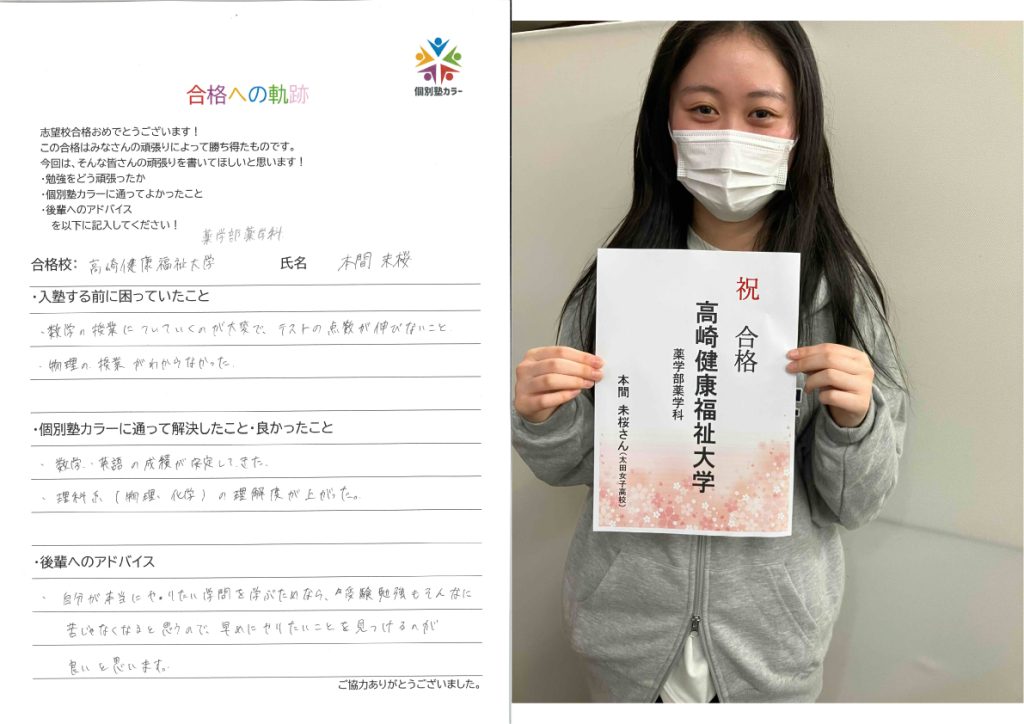 個別塾カラー
合格への軌跡
志望校合格おめでとうございます！
この合格はみなさんの頑張りによって勝ち得たものです。
今回は、そんな皆さんの頑張りを書いてほしいと思います！
・勉強をどう頑張ったか
・個別塾カラーに通ってよかったこと
・後輩へのアドバイス
を以下に記入してください！
薬学部薬学科
合格校： 高崎健康福祉大学 氏名 本間 未桜
・入塾する前に困っていたこと
・数学の授業についていくのが大変で、テストの点数が伸びないこと.
・物理の授業がわからなかった.
・個別塾カラーに通って解決したこと・良かったこと
・数学・英語の成績が安定してきた.
・理科系（物理、化学）の理解度が上がった。
・後輩へのアドバイス
・自分が本当にやりたい学問を学ぶためなら、受験勉強もそんなに
苦じゃなくなると思うので、早めにやりたいことを見つけるのが
良いと思います。
ご協力ありがとうございました。
祝 合格
高崎健康福祉大学
薬学部薬学科
本間 未桜さん（太田女子高校）